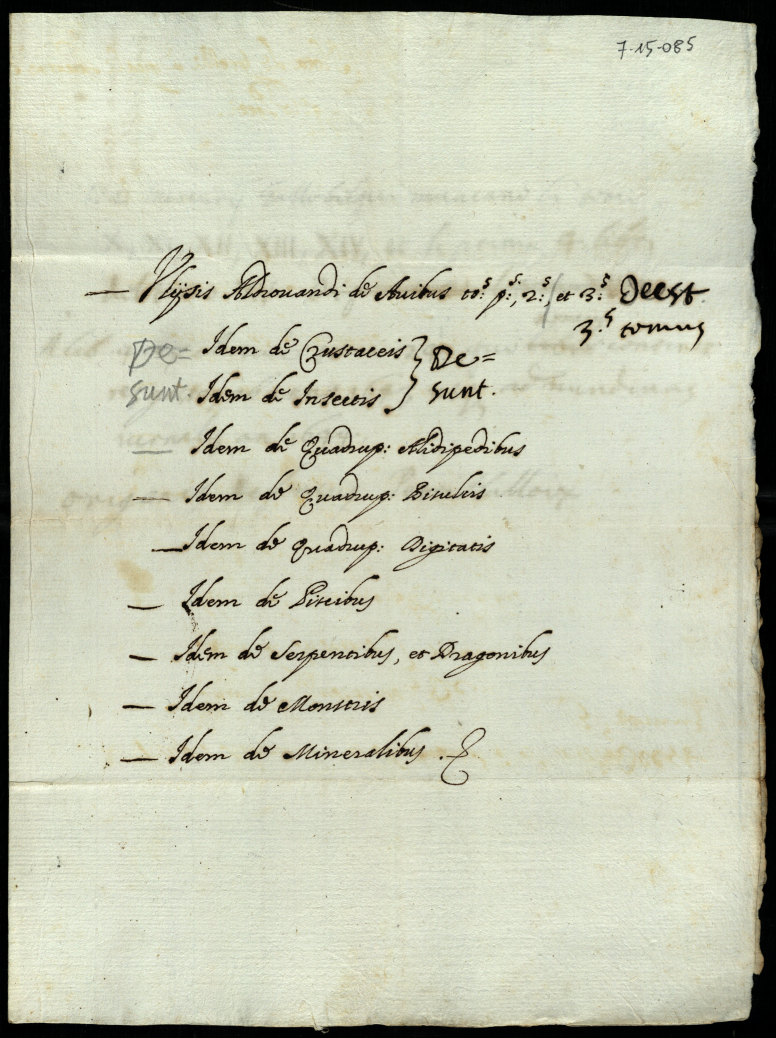 7-15-085
— Ulÿsis Aldrovandi de Avibus to:s p:s, 2:s, et 3:s Deest
3.s tomus
De= Idem de Crustaceis } De=
sunt. Idem de Insectis } sunt.
— Idem de Quadrup: Alidipedibus
— Idem de Quadrup: Bisulcis
— Idem de Quadrup: Digitatis
— Idem de Piscibus
— Idem de Serpentibus, et Dragonibus
— Idem de Monstris
— Idem de Mineralibus.